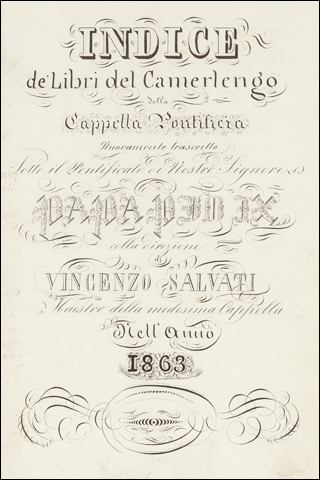 INDICE
de' Libri del Camerlengo
della
Cappella Pontificia
Nuovamente trascritto
Sotto il Pontificato di Nostro Signore
PAPA PIO IX
colla direzione
di
VINCENZO SALVATI
Maestro della medesima Cappella
Nell' Anno
1863